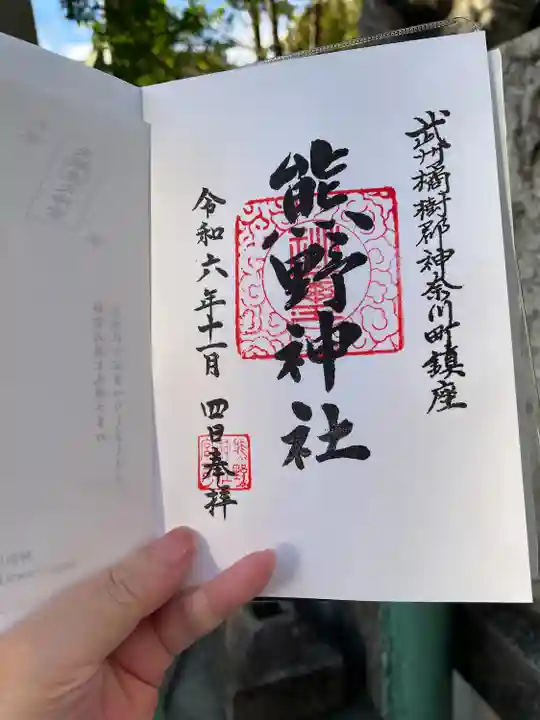 武州橘樹郡神奈川町鎮座
熊野神社
令和六年十一月四日奉拝